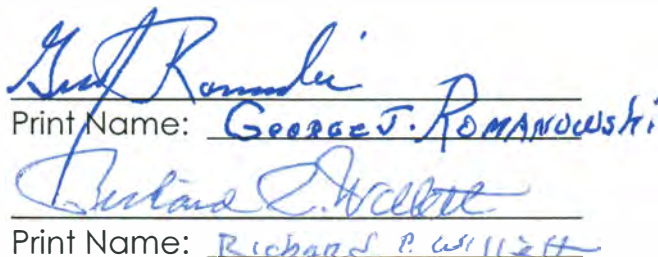 Print Name: George J. Romanowski
Richard P. Willett
Print Name: Richard P. Willett